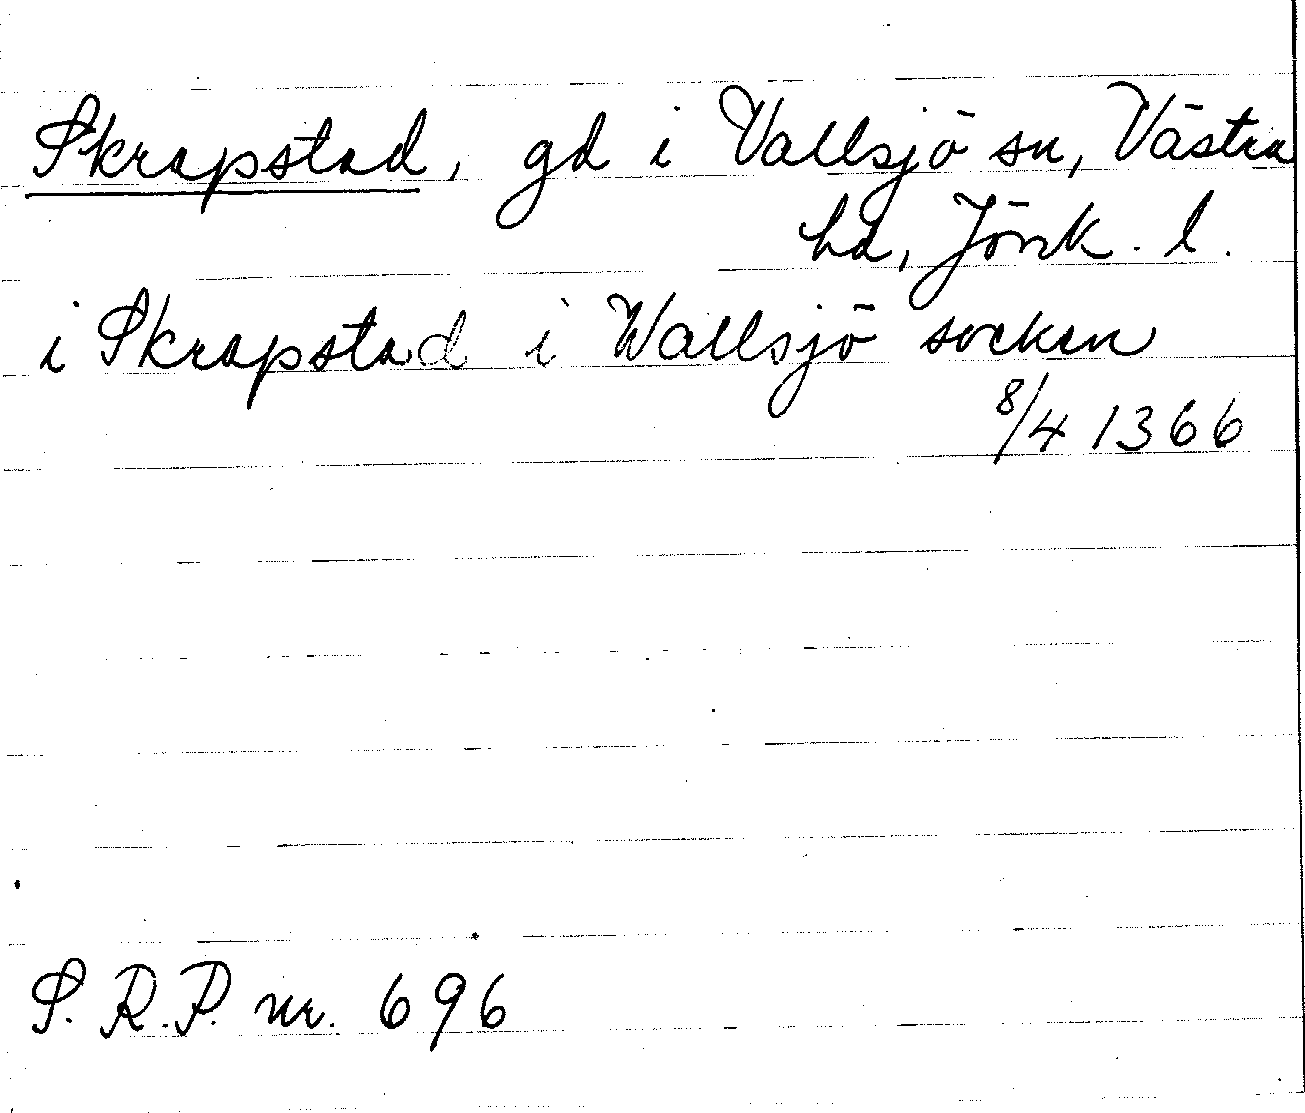 Skrapstad, gd i Vallsjö sn, Västra
hd, Jönk. l.
i Skrapstad i Wallsjö socken
8/4 1366
S. R. P. nr. 696